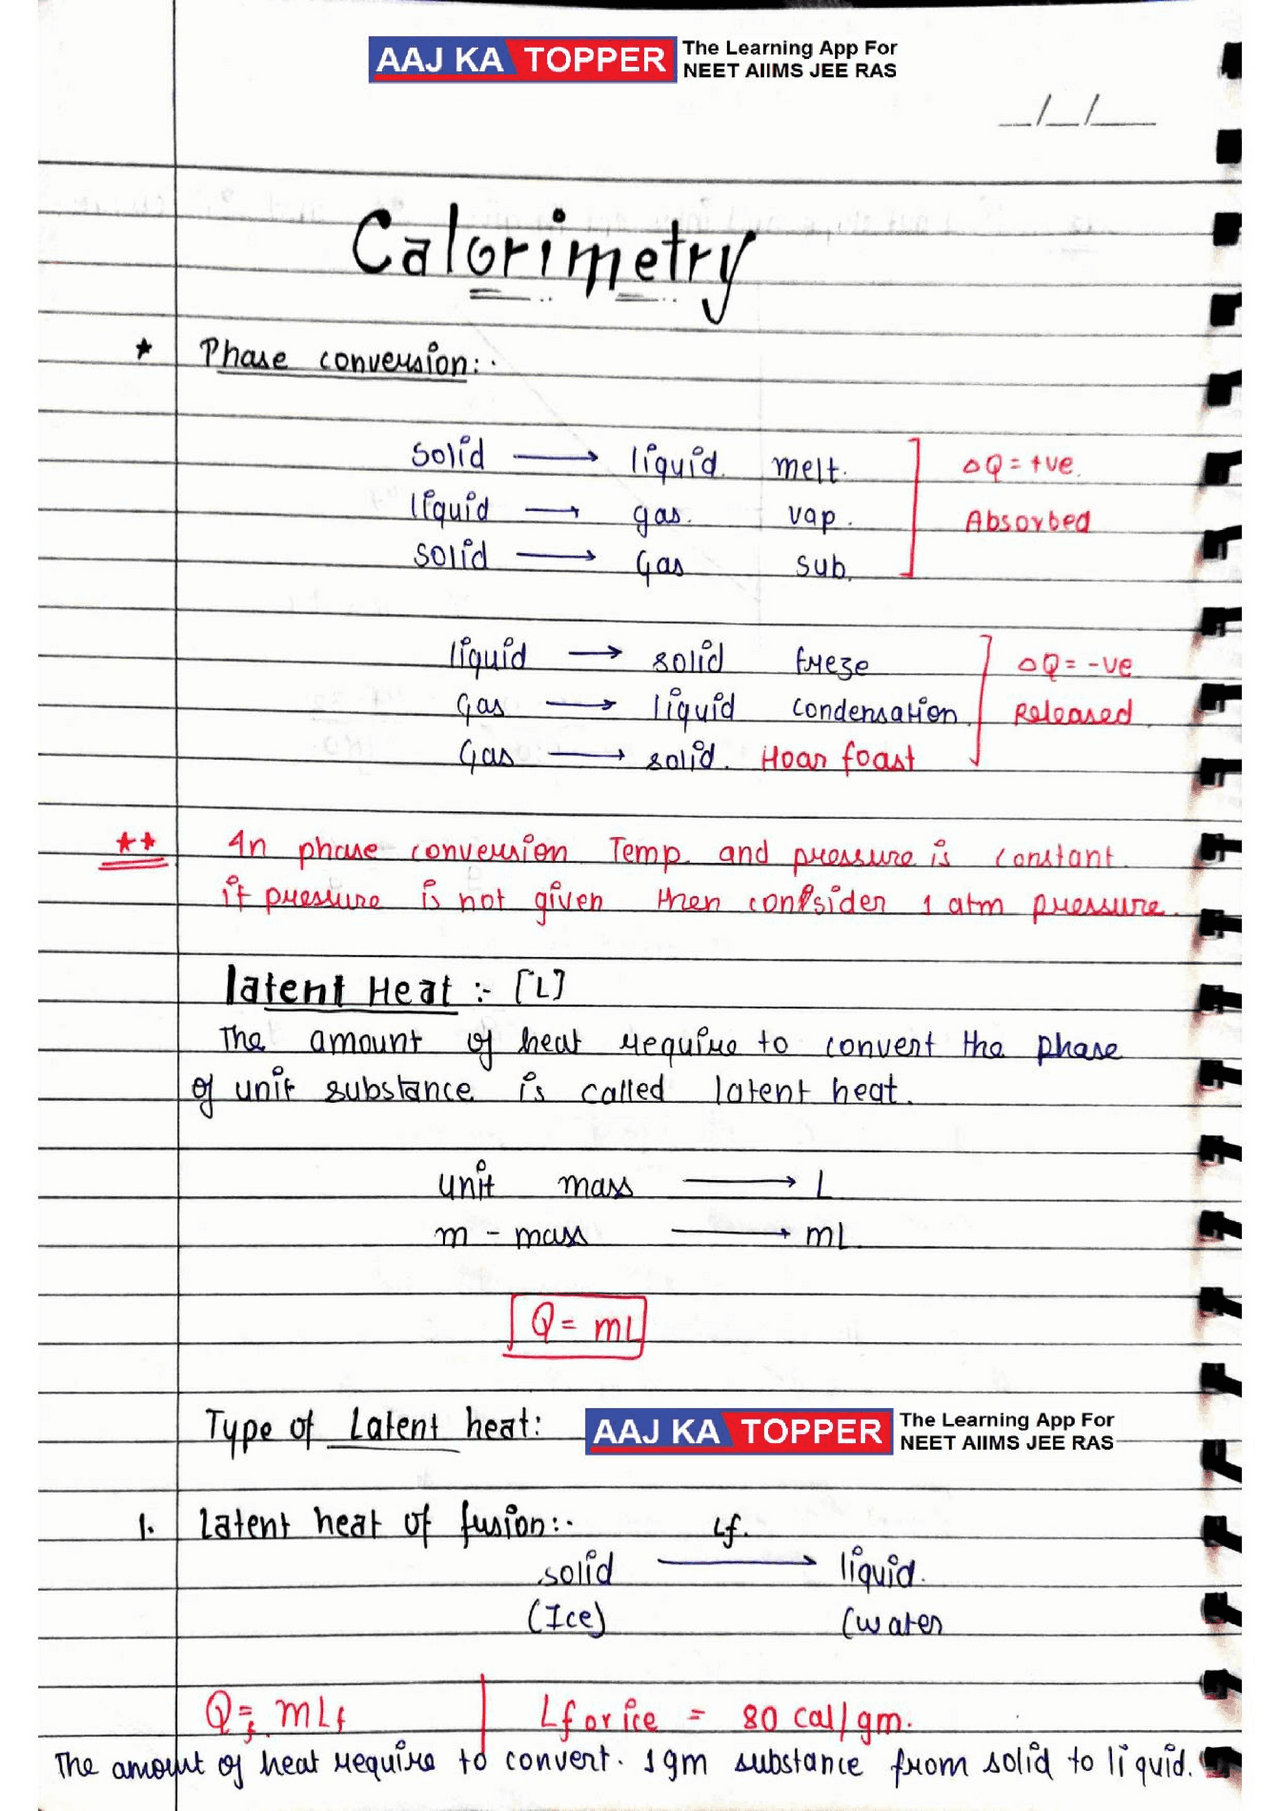 AAJ KA TOPPER The Learning App For
NEET AIIMS JEE RAS
_/_/__
Calorimetry
★ Phase conversion:-
Solid → liquid melt.
liquid → gas. vap.
solid → Gas sub.
ΔQ = +ve.
Absorbed
liquid → solid freeze
Gas → liquid condensation.
Gas → solid. Hoar foast
ΔQ = -ve
Released.
★★ In phase conversion Temp. and pressure is constant.
if pressure is not given then consider 1 atm pressure.
latent Heat :- [L]
The amount of heat require to convert the phase
of unit substance is called latent heat.
unit mass → L
m - mass → mL
Q = mL
Type of Latent heat:
AAJ KA TOPPER The Learning App For
NEET AIIMS JEE RAS
1. Latent heat of fusion:-
Lf.
solid → liquid.
(Ice) (water
Q = mLf | Lf or ice = 80 cal/gm.
The amount of heat require to convert. 1gm substance from solid to liquid.